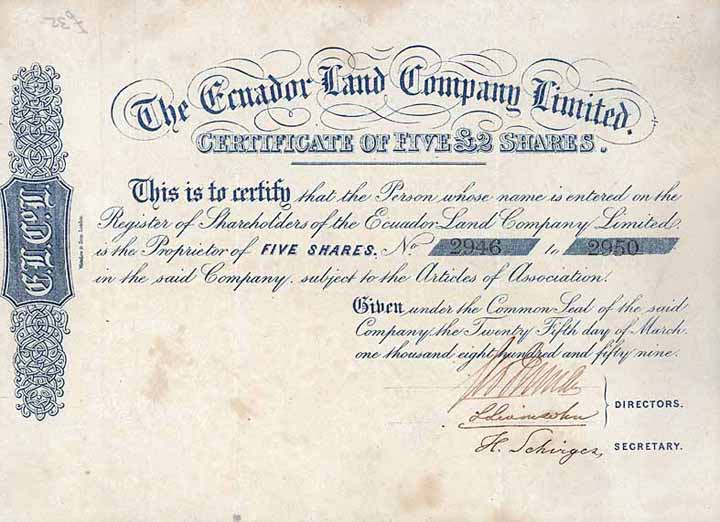 £35
The Ecuador Land Company Limited.
CERTIFICATE OF FIVE £2 SHARES.
This is to certify that the Person whose name is entered on the
Register of Shareholders of the Ecuador Land Company Limited,
is the Proprietor of FIVE SHARES. No 2946 to 2950
in the said Company, subject to the Articles of Association.
Given under the Common Seal of the said
Company, the Twenty Fifth day of March
one thousand eight hundred and fifty nine.
DIRECTORS.
H. Schirges, SECRETARY.
E.L.Co.L.